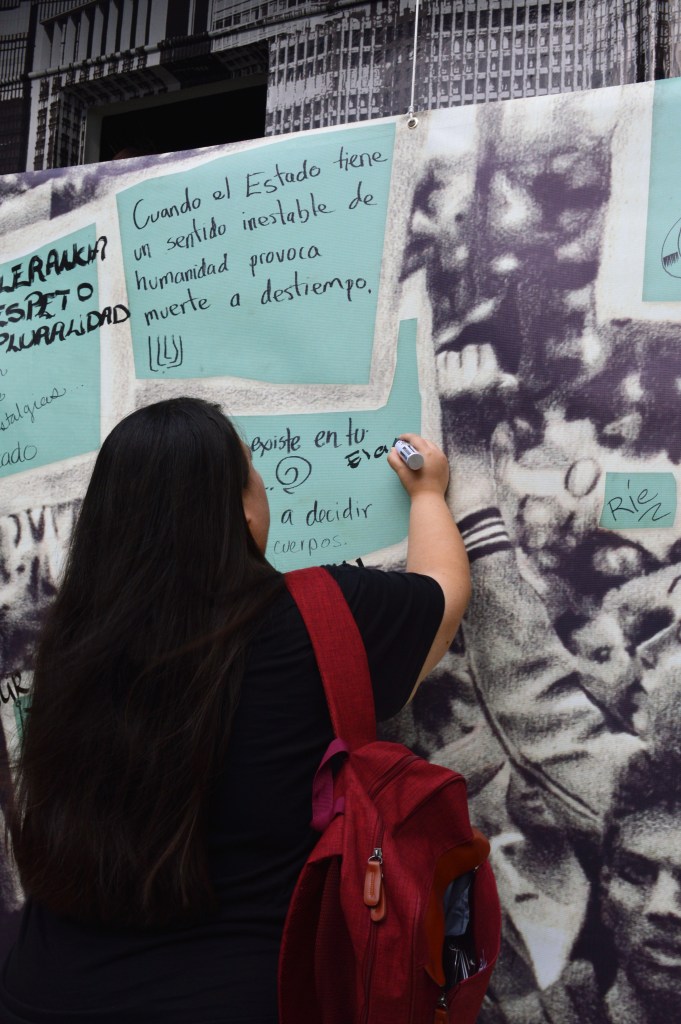 Cuando el Estado tiene
un sentido inestable de
humanidad provoca
muerte a destiempo.
LERANCIA
ESPETO
PLURALIDAD
existe en tu
a decidir
cuerpos.
Ríe